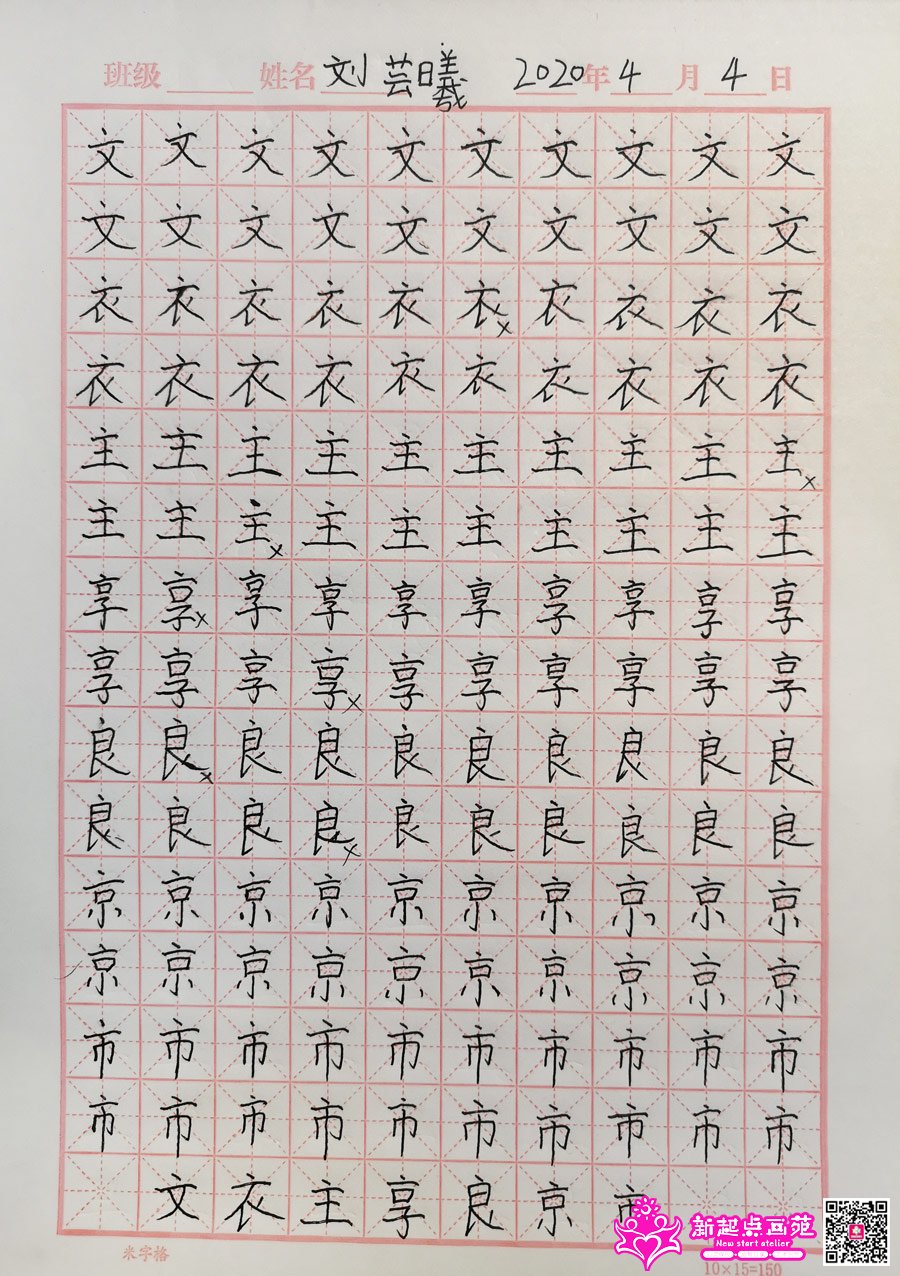 班级 姓名 刘芸曦 2020年4月4日
文文文文文文文文文文
文文文文文文文文文文
衣衣衣衣衣衣x衣衣衣衣
衣衣衣衣衣衣衣衣衣衣
主主主主主主主主主主x
主主主x主主主主主主主
享享x享享享享享享享享
享享享享x享享享享享享
良良x良良良良良良良良
良良良良x良良良良良良
京京京京京京京京京京
京京京京京京京京京京
市市市市市市市市市市
市市市市市市市市市市
文衣主享良京市
新起点画苑
New start atelier
米字格
10×15=150